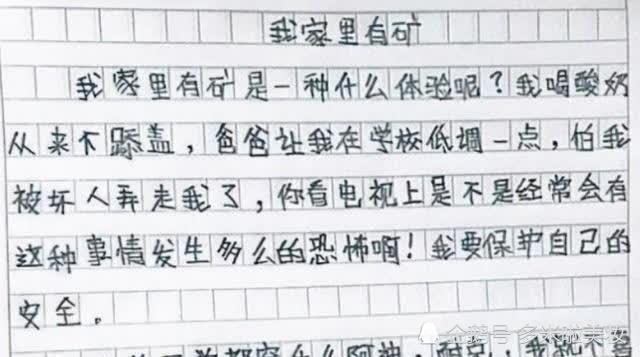 我家里有矿
我家里有矿是一种什么体验呢？我喝酸奶
从来不舔盖，爸爸让我在学校低调一点，怕我
被坏人弄走我了，你看电视上是不是经常会有
这种事情发生多么的恐怖啊！我要保护自己的
安全。